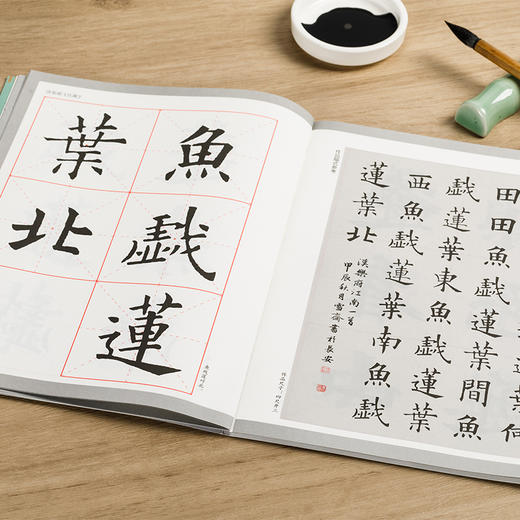 魚戱蓮
葉北
何
田田魚戱蓮葉間魚
戱蓮葉東魚戱蓮葉
西魚戱蓮葉南魚戱
蓮葉北
漢樂府江南一首
甲辰秋月雪齋書於長安